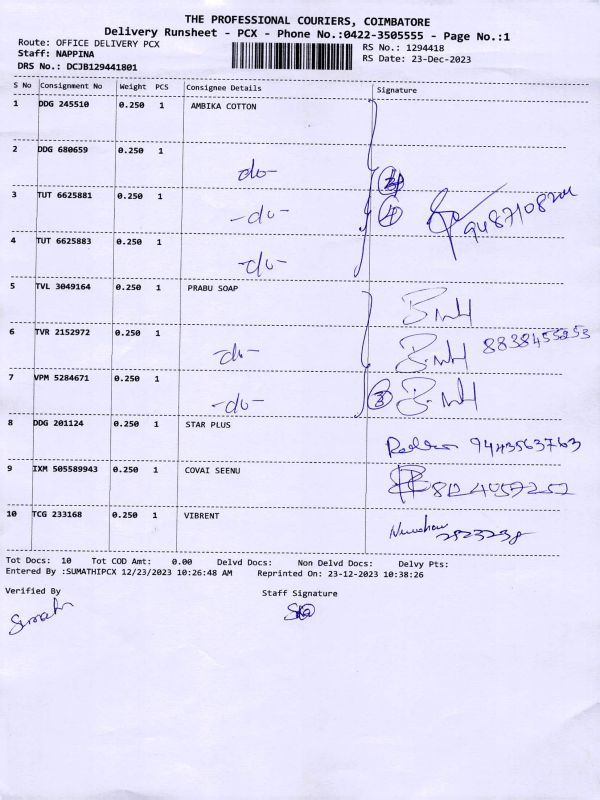 THE PROFESSIONAL COURIERS, COIMBATORE
Delivery Runsheet - PCX - Phone No.:0422-3505555 - Page No.:1
Route: OFFICE DELIVERY PCX
RS No.: 1294418
Staff: NAPPINA
RS Date: 23-Dec-2023
DRS No.: DCJB129441801
S No Consignment No Weight PCS Consignee Details Signature
1 DDG 245510 0.250 1 AMBIKA COTTON
2 DDG 680659 0.250 1
do-
3 TUT 6625881 0.250 1
-do- 4
4 TUT 6625883 0.250 1
-do-
5 TVL 3049164 0.250 1 PRABU SOAP
6 TVR 2152972 0.250 1
-do- 8838455253
7 VPM 5284671 0.250 1
-do- 3
8 DDG 201124 0.250 1 STAR PLUS
9443563763
9 IXM 505589943 0.250 1 COVAI SEENU
10 TCG 233168 0.250 1 VIBRENT
Tot Docs: 10 Tot COD Amt: 0.00 Delvd Docs: Non Delvd Docs: Delvy Pts:
Entered By :SUMATHIPCX 12/23/2023 10:26:48 AM Reprinted On: 23-12-2023 10:38:26
Verified By Staff Signature